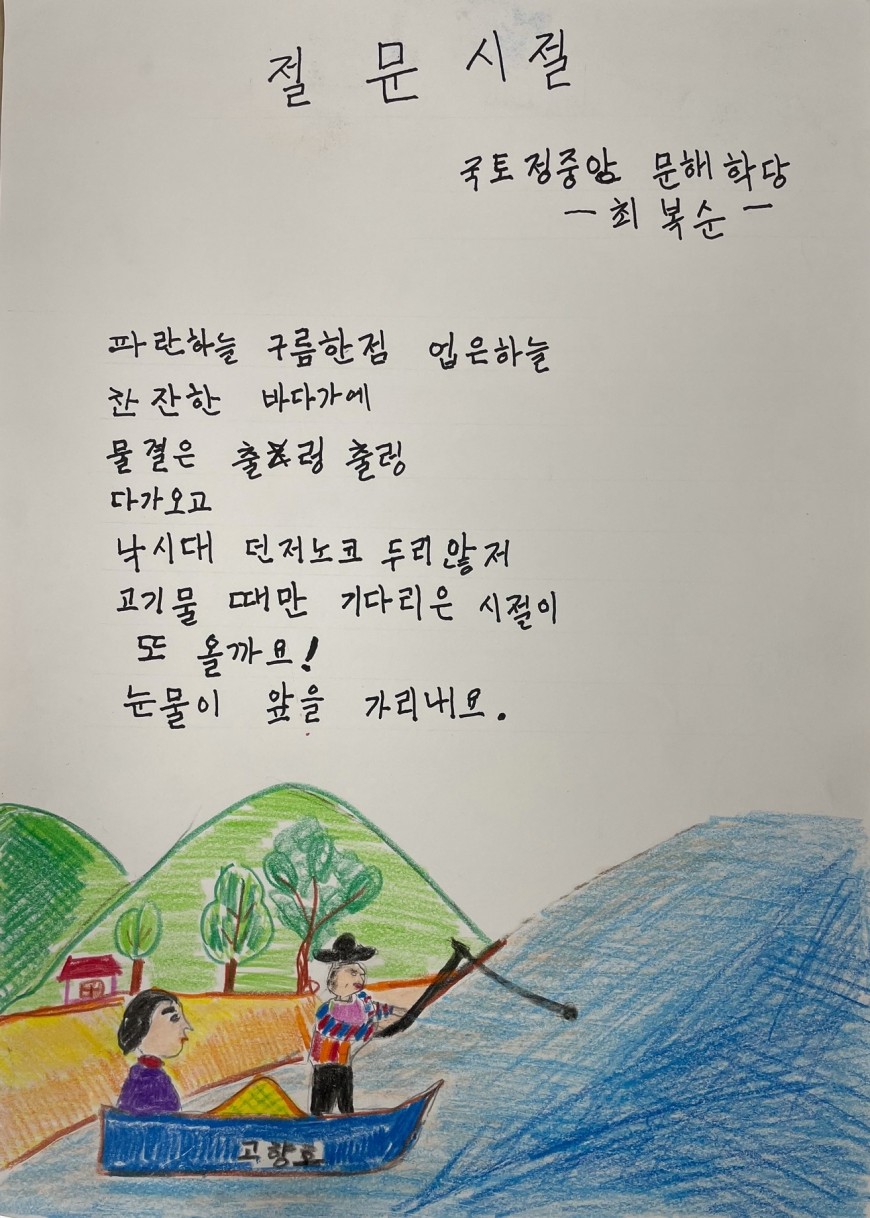 절 문 시절
국토정중앙 문해학당
- 최복순 -
파란하늘 구름한점 업은하늘
찬잔한 바다가에
물결은 출렁 출렁
다가오고
낙시대 던저노코 두리앟저
고기물 때만 기다리은 시절이
또 올까요!
눈물이 앞을 가리내요.
고향호